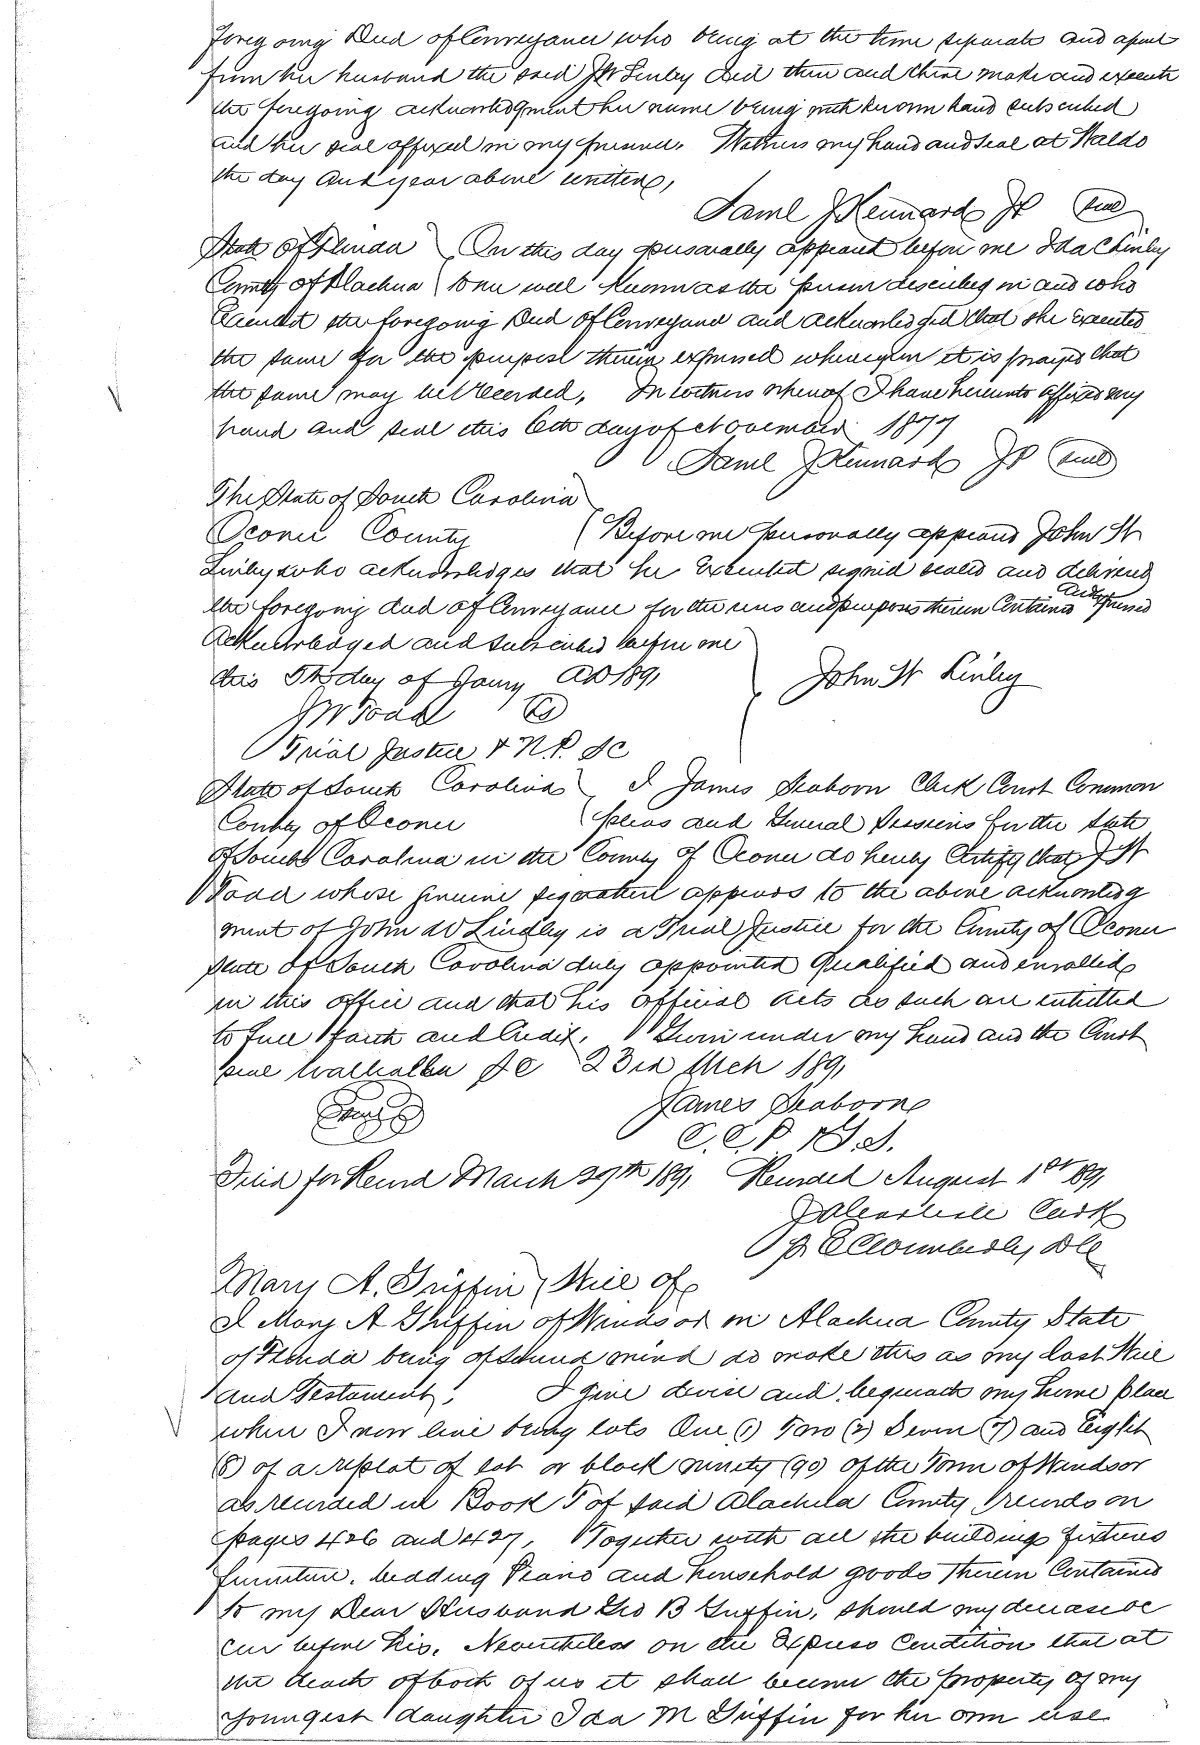 foregoing Deed of Conveyance who being at the time separate and apart
from her husband the said JW Linley did then and there make and execute
the foregoing acknowledgment her name being with her own hand subscribed
and her seal affixed in my presence. Witness my hand and seal at Waldo
the day and year above written,
Saml J Kennard JP (seal)
State of Florida } On this day personally appeared before me Ida C Linley
County of Alachua } to me well known as the person described in and who
Executed the foregoing Deed of Conveyance and acknowledged that she executed
the same for the purpose therein expressed whereupon it is prayed that
the same may be recorded. In witness whereof I have hereunto affixed my
hand and seal this 6th day of November 1877
Saml J Kennard JP (seal)
The State of South Carolina }
Oconee County { Before me personally appeared John W
Linley who acknowledges that he Executed signed sealed and delivered
the foregoing deed of Conveyance for the uses and purposes therein Contained and expressed
Acknowledged and subscribed before me
this 5th day of Jany AD 1891 } John W Linley
J W Todd (LS)
Trial Justice & N.P. SC
State of South Carolina } I James Seaborn Clerk Court Common
County of Oconee { pleas and General Sessions for the State
of South Carolina in the County of Oconee do hereby Certify that J W
Todd whose genuine signature appears to the above acknowledg
ment of John W Lindley is a Trial Justice for the County of Oconee
State of South Carolina duly appointed Qualified and enrolled
in this office and that his official acts as such are entitled
to full faith and Credit. Given under my hand and the Court
seal Walhalla SC 23rd Mch 1891
James Seaborn
C.C.P. & G.S.
Filed for Record March 29th 1891 Recorded August 1st 1891
J A Carlisle Clerk
DC
Mary A. Griffin } Will of
I Mary A Griffin of Windsor in Alachua County State
of Florida being of sound mind do make this as my last Will
and Testament. I give devise and bequeath my home place
where I now live being lots One (1) Two (2) Seven (7) and Eight
(8) of a replat of lot or block ninety (90) of the Town of Windsor
as recorded in Book T of said Alachua County records on
pages 426 and 427. Together with all the buildings fixtures
furniture, bedding Piano and household goods therein Contained
to my Dear Husband Geo B Griffin, should my decease oc
cur before his. Nevertheless on the Express Condition that at
the death of both of us it shall become the property of my
youngest daughter Ida M Griffin for her own use